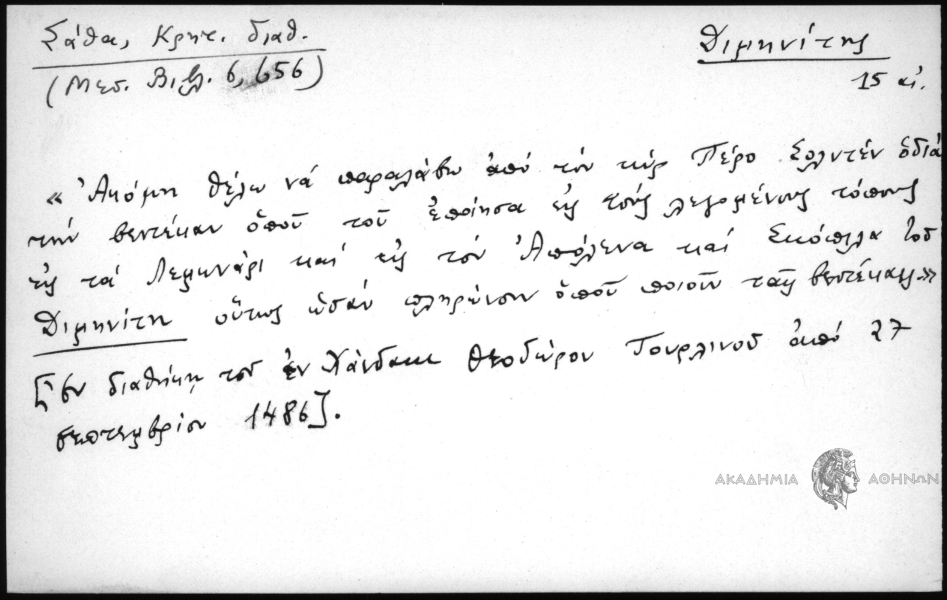 Σάθα, Κρητ. διαθ.
(Μεσ. Βιβλ. 6, 656)
Διμηνίτης
15 αἰ.
« Ἀκόμη θέλω νά παραλάβω ἀπό τόν κύρ Πέρο Σολντέν ὁδιά
τήν βεντέκαν ὅπου τοῦ ἐποίησα εἰς τούς λεγομένους τόπους
εἰς τά Λεμηνάρι καί εἰς τόν Ἀπόλενα καί Σκόπελα τοῦ
Διμηνίτη οὕτως ὡσάν πληρώνουν ὁποῦ ποιοῦν ταῖς βεντέκαις»
[ἐν διαθήκῃ τοῦ ἐν Χάνδακι Θεοδώρου Τουρλινοῦ ἀπό 27
σεπτεμβρίου 1486].
ΑΚΑΔΗΜΙΑ ΑΘΗΝΩΝ